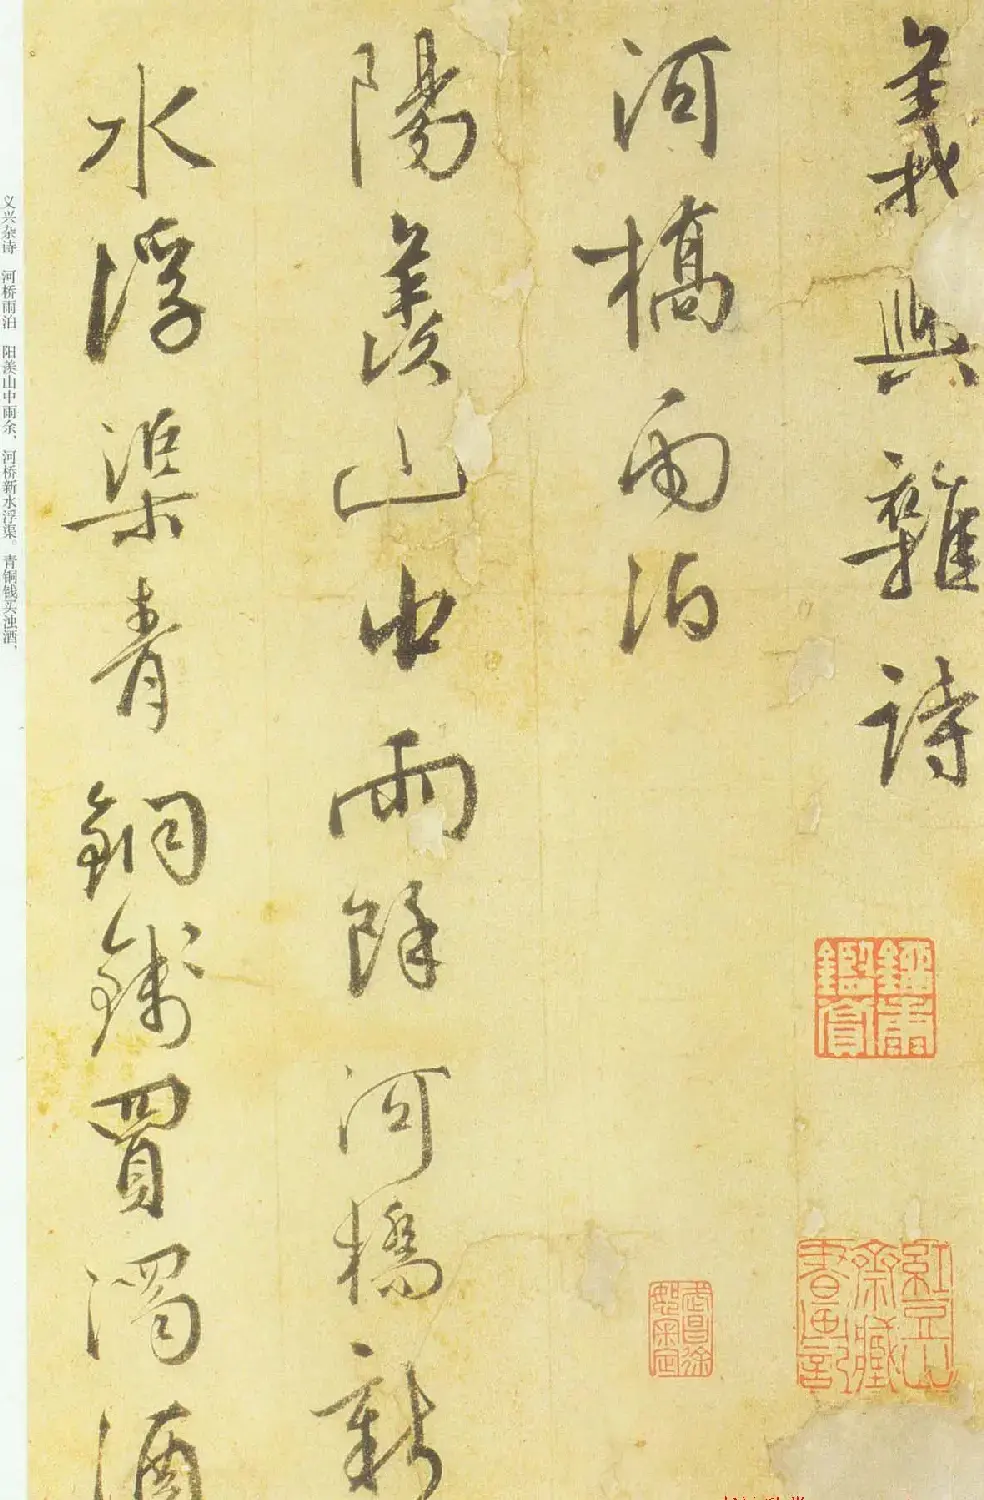 義興雜詩
河橋雨泊
陽羨山中雨餘河橋新
水浮渠青銅錢買濁酒
义兴杂诗 河桥雨泊 阳羡山中雨余、河桥新水浮渠。青铜钱买浊酒、
鑑賞
書画記